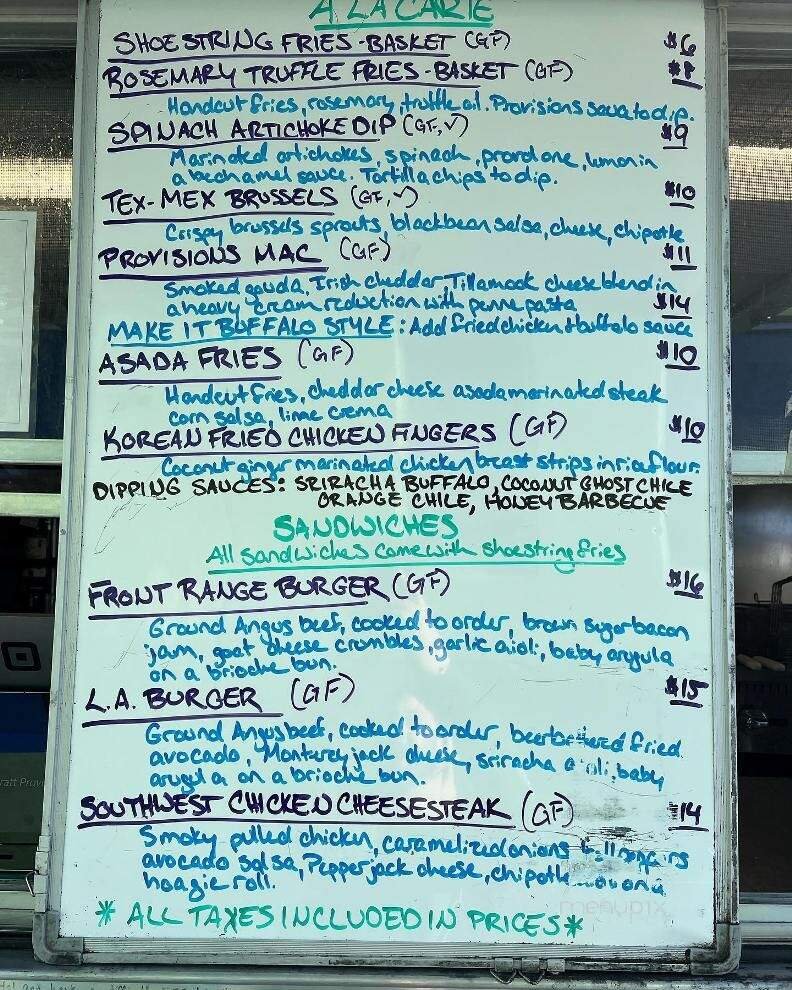 A LA CARTE
SHOESTRING FRIES - BASKET (GF) $6
ROSEMARY TRUFFLE FRIES - BASKET (GF) $8
Handcut fries, rosemary, truffle oil. Provisions sauce to dip.
SPINACH ARTICHOKE DIP (GF, V) $9
Marinated artichokes, spinach, provolone, lemon in
a bechamel sauce. Tortilla chips to dip.
TEX-MEX BRUSSELS (GF, V) $10
Crispy brussels sprouts, blackbean salsa, cheese, chipotle
PROVISIONS MAC (GF) $11
Smoked gouda, Irish cheddar, Tillamook cheese blend in
a heavy cream reduction with penne pasta $14
MAKE IT BUFFALO STYLE: Add fried chicken + buffalo sauce
ASADA FRIES (GF) $10
Handcut fries, cheddar cheese asada marinated steak
corn salsa, lime crema
KOREAN FRIED CHICKEN FINGERS (GF) $10
Coconut ginger marinated chicken breast strips in rice flour.
DIPPING SAUCES: SRIRACHA BUFFALO, COCONUT GHOST CHILE
ORANGE CHILE, HONEY BARBECUE
SANDWICHES
All sandwiches come with shoestring fries
FRONT RANGE BURGER (GF) $16
Ground Angus beef, cooked to order, brown sugar bacon
jam, goat cheese crumbles, garlic aioli, baby arugula
on a brioche bun.
L.A. BURGER (GF) $15
Ground Angus beef, cooked to order, beer battered fried
avocado, Monterey jack cheese, sriracha aioli, baby
arugula on a brioche bun.
SOUTHWEST CHICKEN CHEESESTEAK (GF) $14
Smoky pulled chicken, caramelized onions bell peppers
avocado salsa, Pepperjack cheese, chipotle
hoagie roll.
* ALL TAXES INCLUDED IN PRICES *
menupix